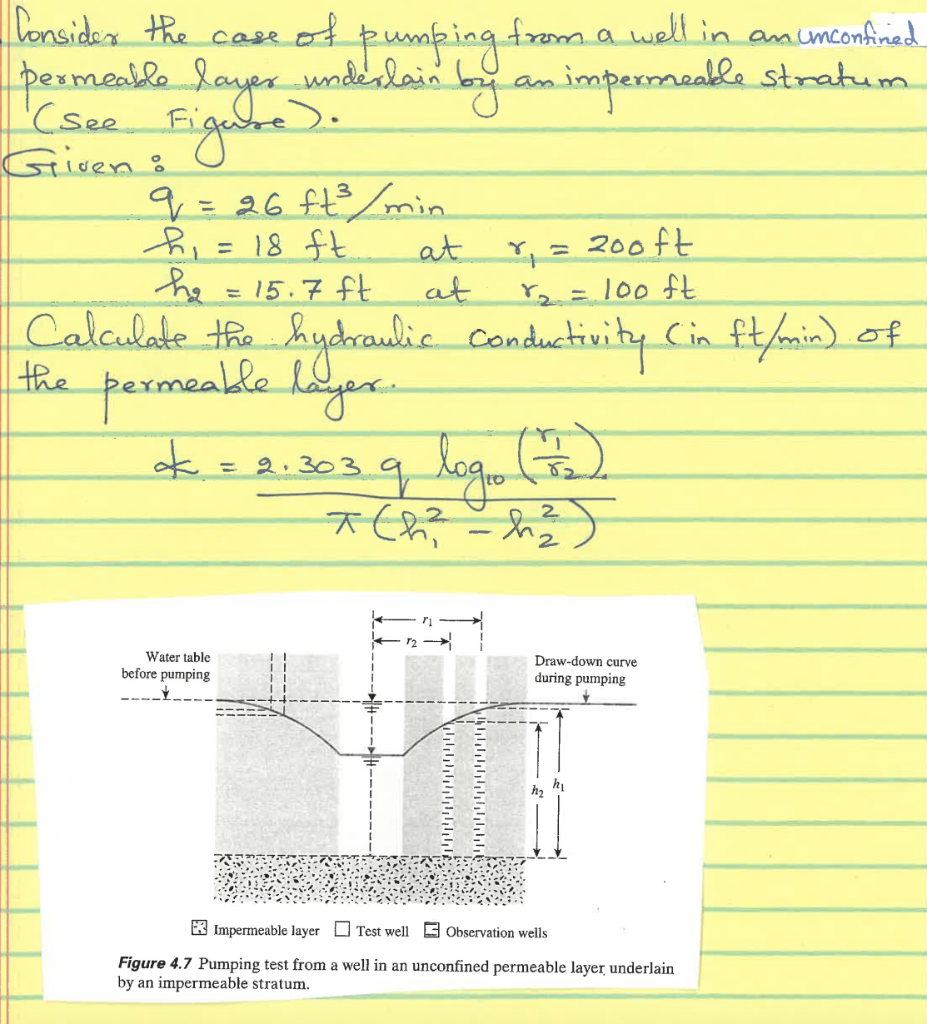 Consider the case of pumping from a well in an unconfined
permeable layer underlain by an impermeable stratum
(See Figure).
Given :
q = 26 ft³/min
h₁ = 18 ft at r₁ = 200 ft
h₂ = 15.7 ft at r₂ = 100 ft
Calculate the hydraulic conductivity (in ft/min) of
the permeable layer.
k = 2.303 q log₁₀ (r₁/r₂)
π (h₁² − h₂²)
r₁
r₂
Water table
before pumping
Draw-down curve
during pumping
h₂ h₁
Impermeable layer Test well Observation wells
Figure 4.7 Pumping test from a well in an unconfined permeable layer underlain
by an impermeable stratum.